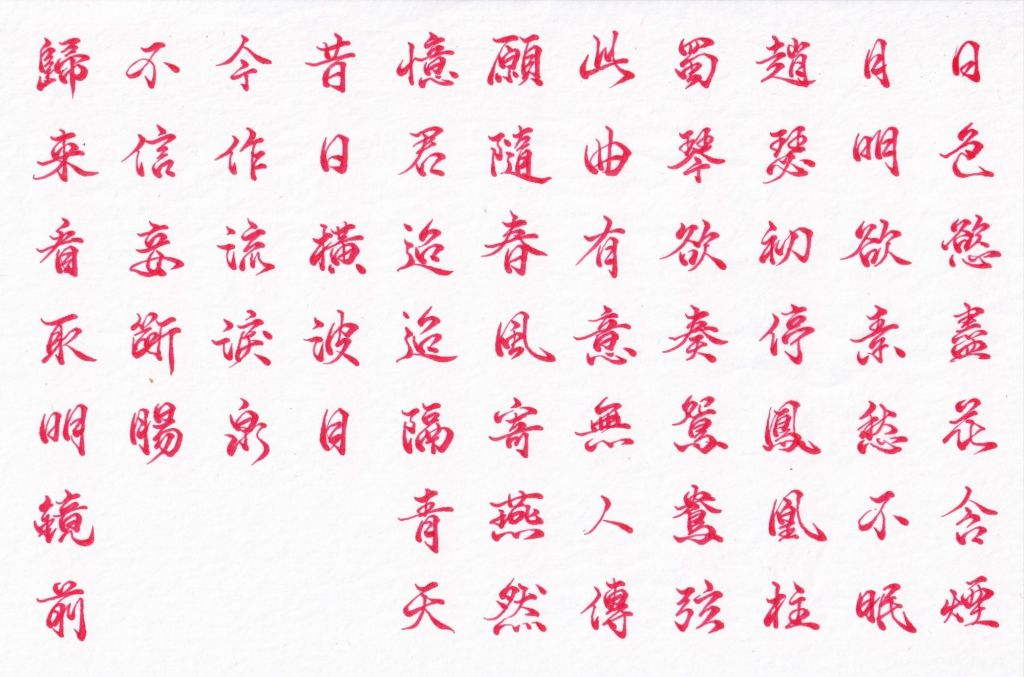 日色慾盡花含煙
月明欲素愁不眠
趙瑟初停鳳凰柱
蜀琴欲奏鴛鴦弦
此曲有意無人傳
願隨春風寄燕然
憶君迢迢隔青天
昔日橫波目
今作流淚泉
不信妾斷腸
歸來看取明鏡前